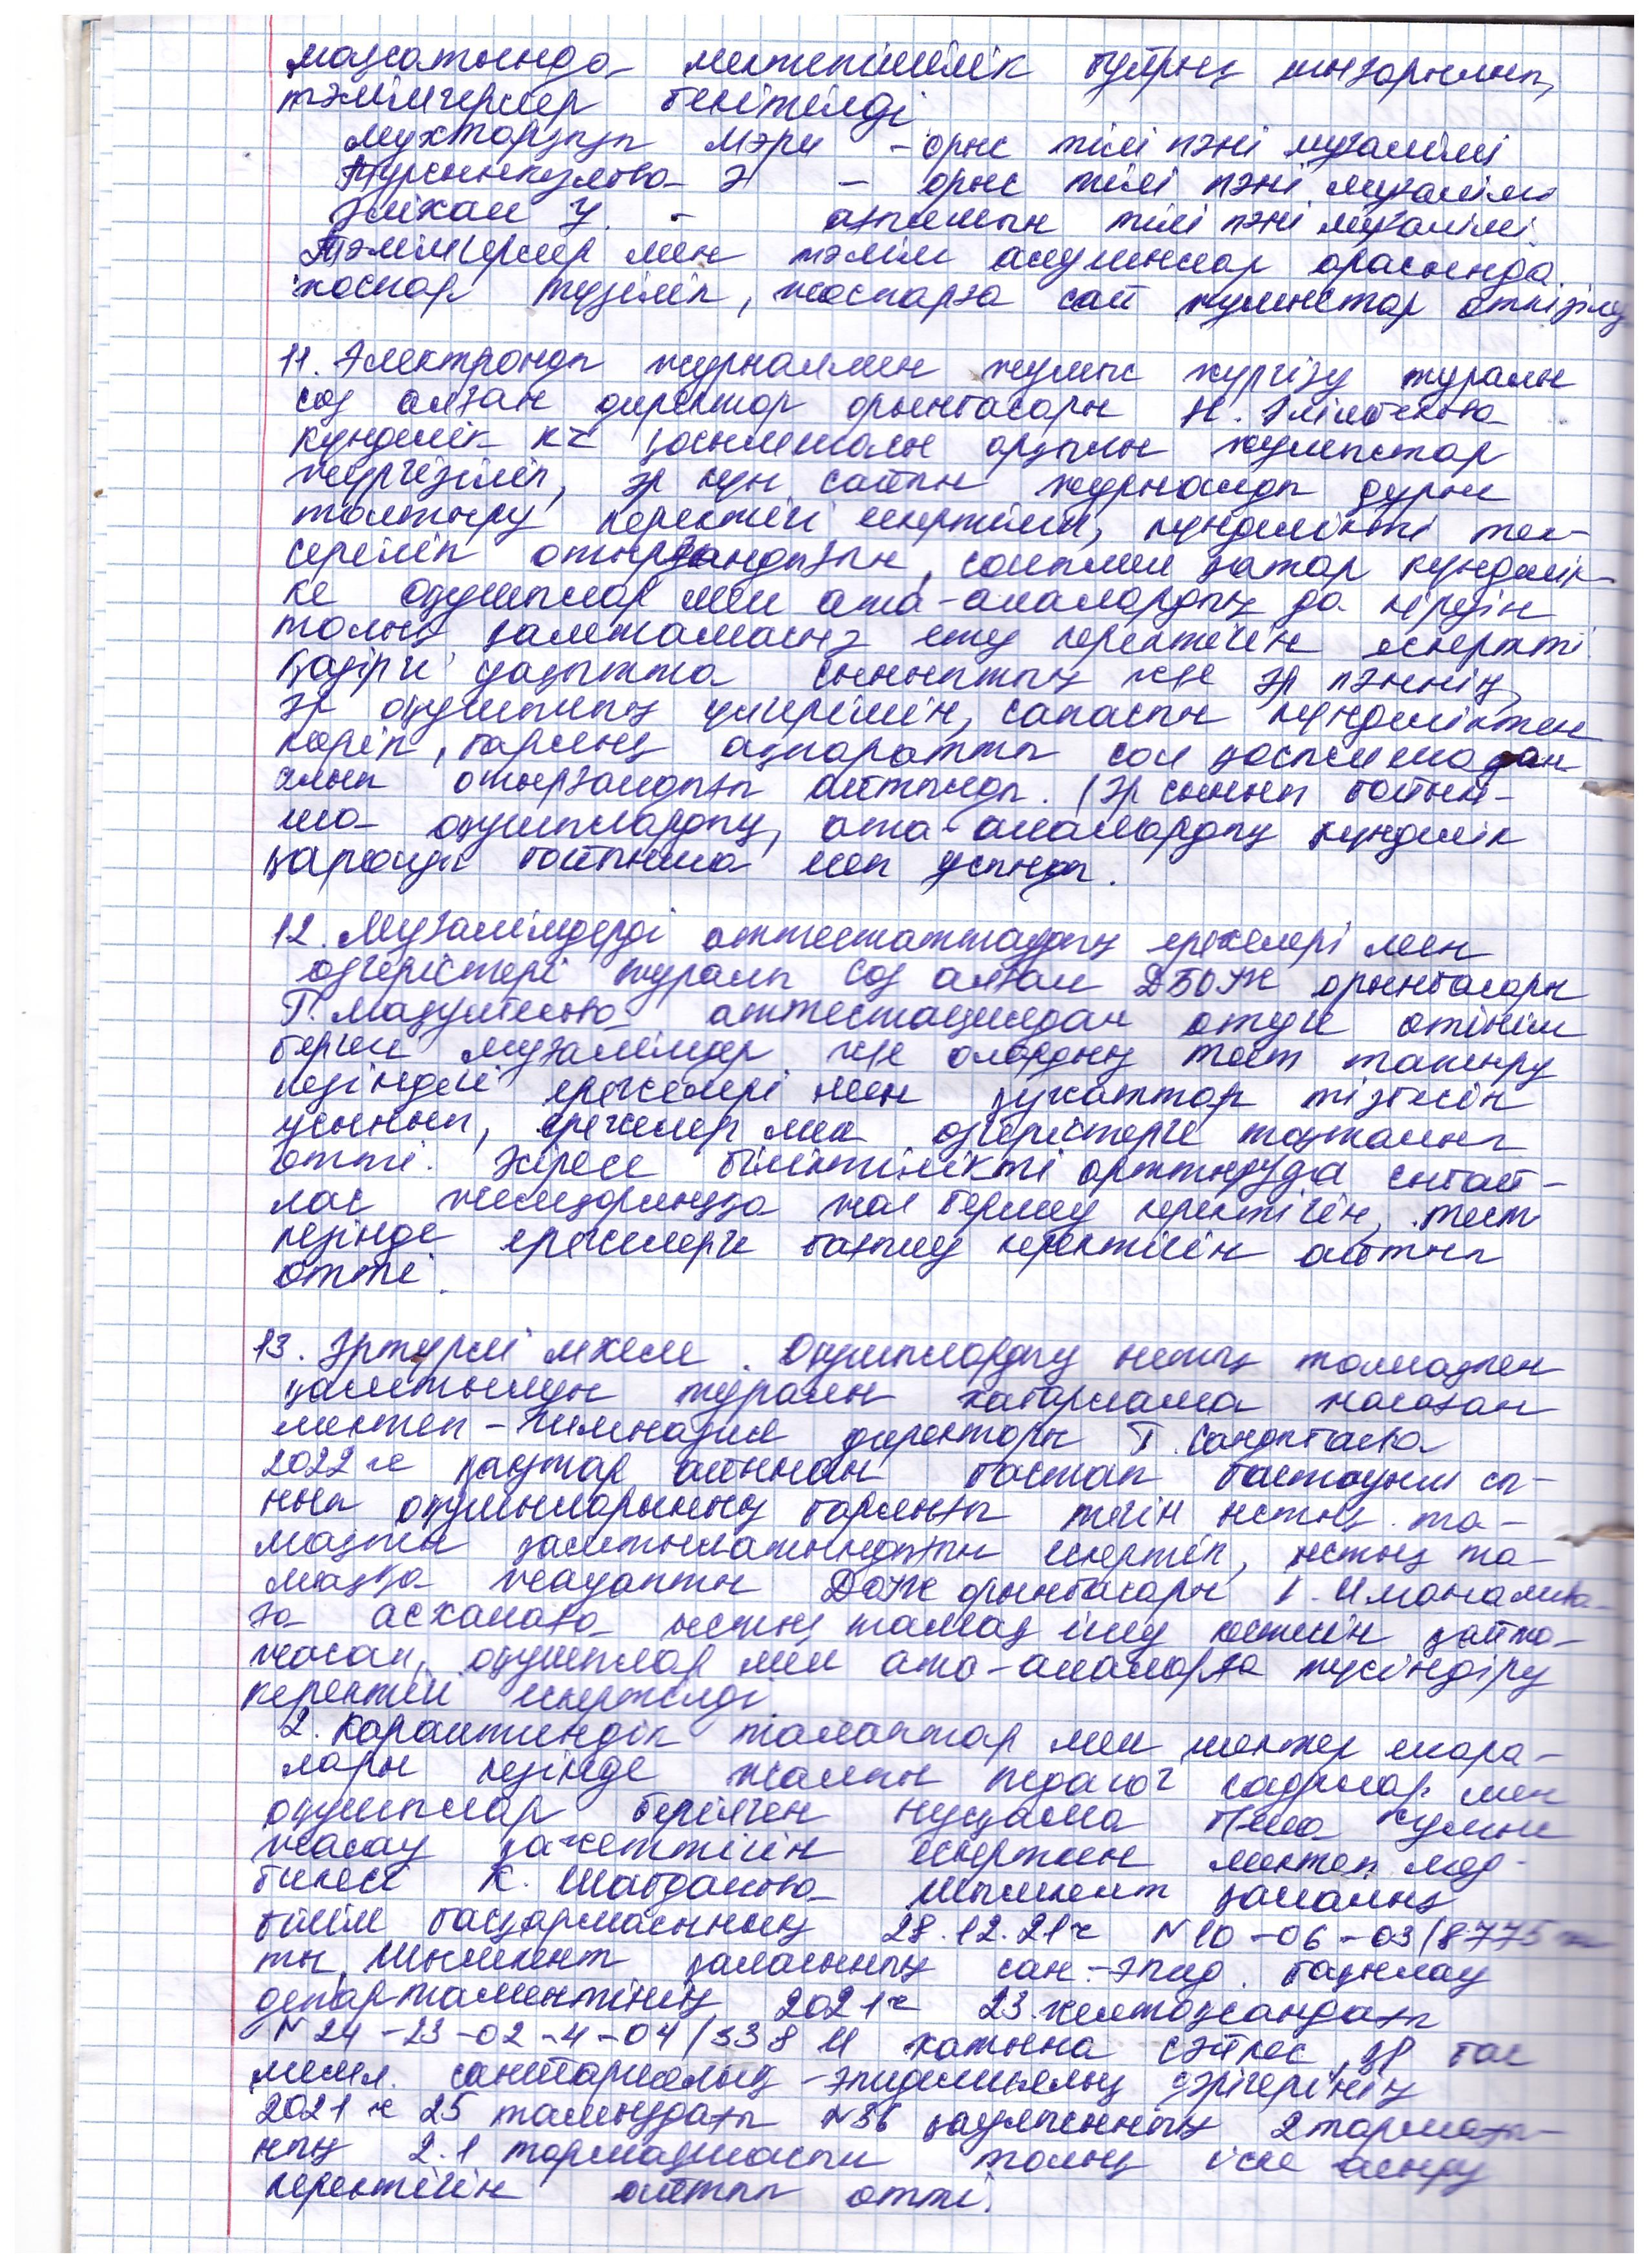 мақсатында мектепішілік бұйрық шығарылып,
тәлімгерлер бекітілді.
Мухторқызы Мэри - орыс тілі пәні мұғалімі
Турсынкулова Э - орыс тілі пәні мұғалімі
Әлихан У. - ағылшын тілі пәні мұғалімі.
Тәлімгерлер мен тәлім алушылар арасында
жоспар түзіліп, жоспарға сай жұмыстар өткізілуде
11. Электронды журналмен жұмыс жүргізу туралы
сөз алған директор орынбасары Н. Әлімбекова
күнделік кz қосымшасы арқылы жұмыстар
жүргізіліп, әр күн сайын журналды дұрыс
толтыру керектігі ескертіліп, күнделікті тек-
серіліп отырғандығын, сонымен қатар күнделік-
ке оқушылар мен ата-аналардың да кіруін
толық қамтамасыз ету керектігін ескертті.
Қазіргі уақытта сыныптың және әр пәннің,
әр оқушының үлгерімін, сапасын күнделіктен
көріп, барлық ақпаратты сол қосымшадан
алып отырғандығын айтынды. (әр сынып бойын-
ша оқушылардың, ата-аналардың күнделік
қарауы бойынша мәлі ұсынды.
12. Мұғалімдерді аттестаттаудың ережелері мен
өзгерістері туралы сөз алған ДБОЖ орынбасары
Г. Мақулбекова аттестациядан өтуге өтініш
берген мұғалімдер және олардың тест тапсыру
кезіндегі ережелері мен құжаттар тізбесін
ұсынып, ережелер мен өзгерістерге тоқталып
өтті. Әсіресе біліктілікті арттыруда сыбай-
лас жемқорлыққа жол бермеу керектігін, тест
кезінде ережелерге бағыну керектігін айтып
өтті.
13. Әртүрлі мәселе. Оқушылардың ыстық тамақпен
қамтылуы туралы хабарлама жасаған
мектеп-гимназия директоры Т. Сандыбаева
2022 ж қаңтар айынан бастап бастауыш сы-
нып оқушыларының барлығы тегін ыстық та-
мақпен қамтылатындығын ескертіп, ыстық та-
маққа жауапты ДОЖ орынбасары Г. Иманалиева-
ға асханаға ыстық тамақ ішу кестесін қайта
жасап, оқушылар мен ата-аналарға түсіндіру
керектігі ескертілді
2. Карантиндік талаптар мен шектеу шара-
лары кезінде жалпы педагог кадрлар мен
оқушылар берілген нұсқама б-ша жұмыс
жасау қажеттігін ескерткен мектеп мед-
бикесі К. Шабданова Шымкент қаласының
білім басқармасының 28.12.21ж N10-06-03/8775
ты Шымкент қаласының сан.-эпид. бақылау
департаментінің 2021ж 23 желтоқсандағы
N24-23-02-4-04/3381 хатына сәйкес, ҚР бас
мемл. санитариялық-эпидемиялық дәрігерінің
2021 ж 25 тамыздағы N36 қаулысының 2 тармағы-
ның 2.1 тармақшасын толық іске асыру
керектігін айтып өтті.